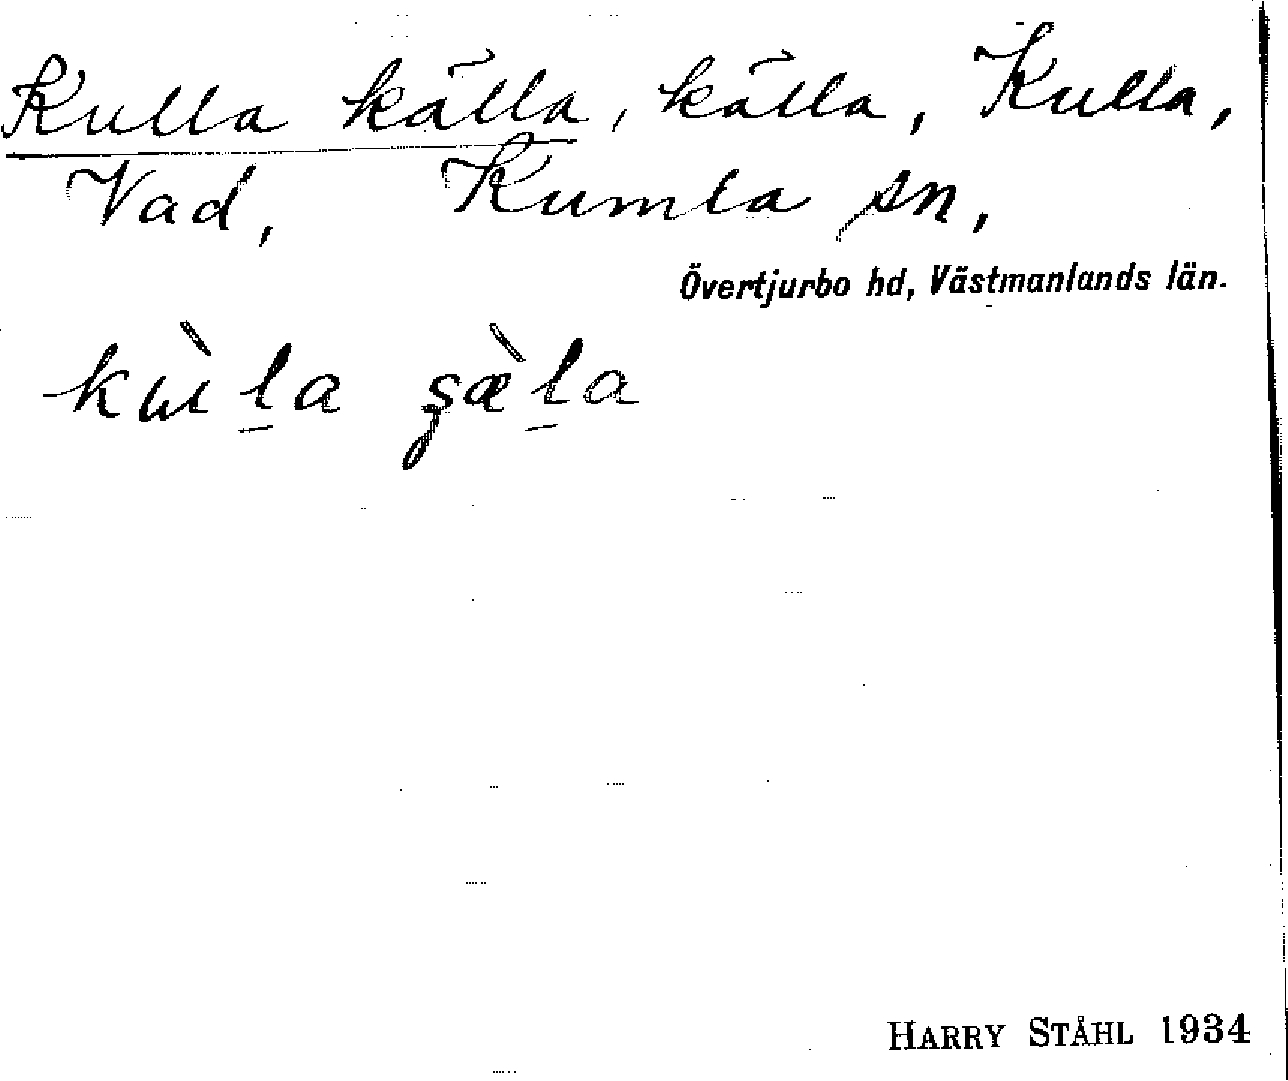 Kulla källa, källa, Kulla,
Vad, Kumla sn,
Övertjurbo hd, Västmanlands län.
kɯ̀l̠a ʂæ̀l̠a
HARRY STÅHL 1934